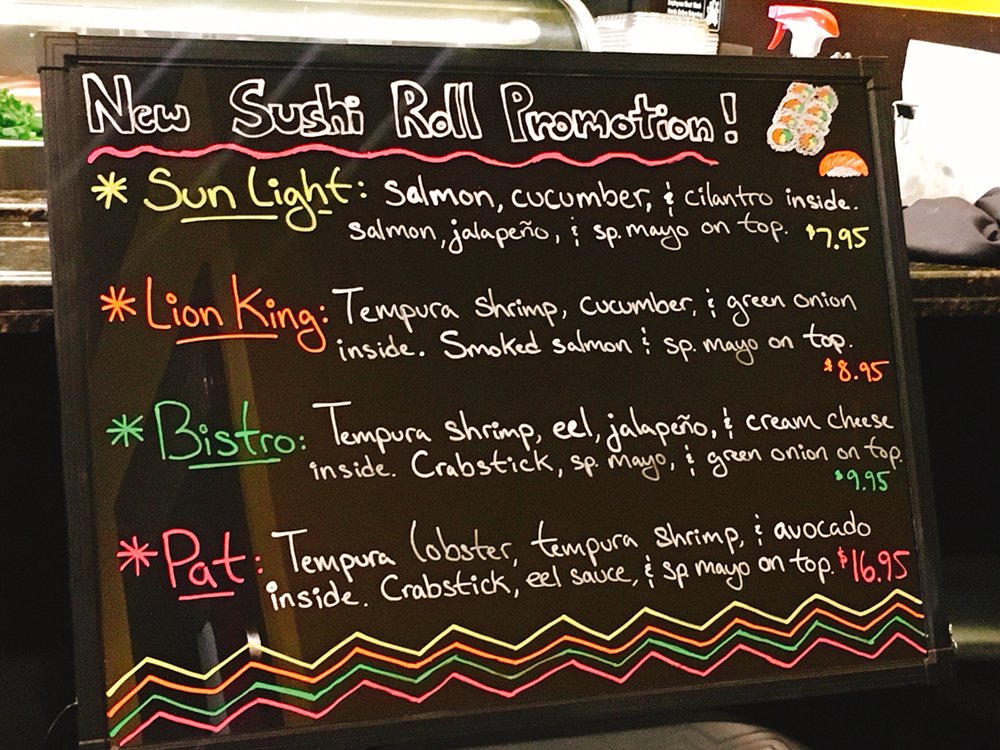 New Sushi Roll Promotion!
* Sun Light: Salmon, cucumber, & cilantro inside.
salmon, jalapeño, & sp. mayo on top. $7.95
* Lion King: Tempura shrimp, cucumber, & green onion
inside. Smoked salmon & sp. mayo on top.
$8.95
* Bistro: Tempura shrimp, eel, jalapeño, & cream cheese
inside. Crabstick, sp. mayo, & green onion on top.
$9.95
* Pat: Tempura lobster, tempura shrimp, & avocado
inside. Crabstick, eel sauce, & sp mayo on top. $16.95